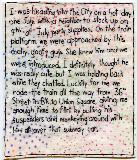 I was heading into the City on a hot day
one July with a neighbor to stock up on
4th of July party supplies. On the train
platform we were approached by this
really goofy guy. She knew him and we
were introduced. I definitely thought he
was really cute but I was holding back
while they chatted. Luckily for me we
rode the train all the way from 36th
Street to Union Square giving me
enough time to flirt by pulling his
suspenders and monkeying around with
him all over that subway car.